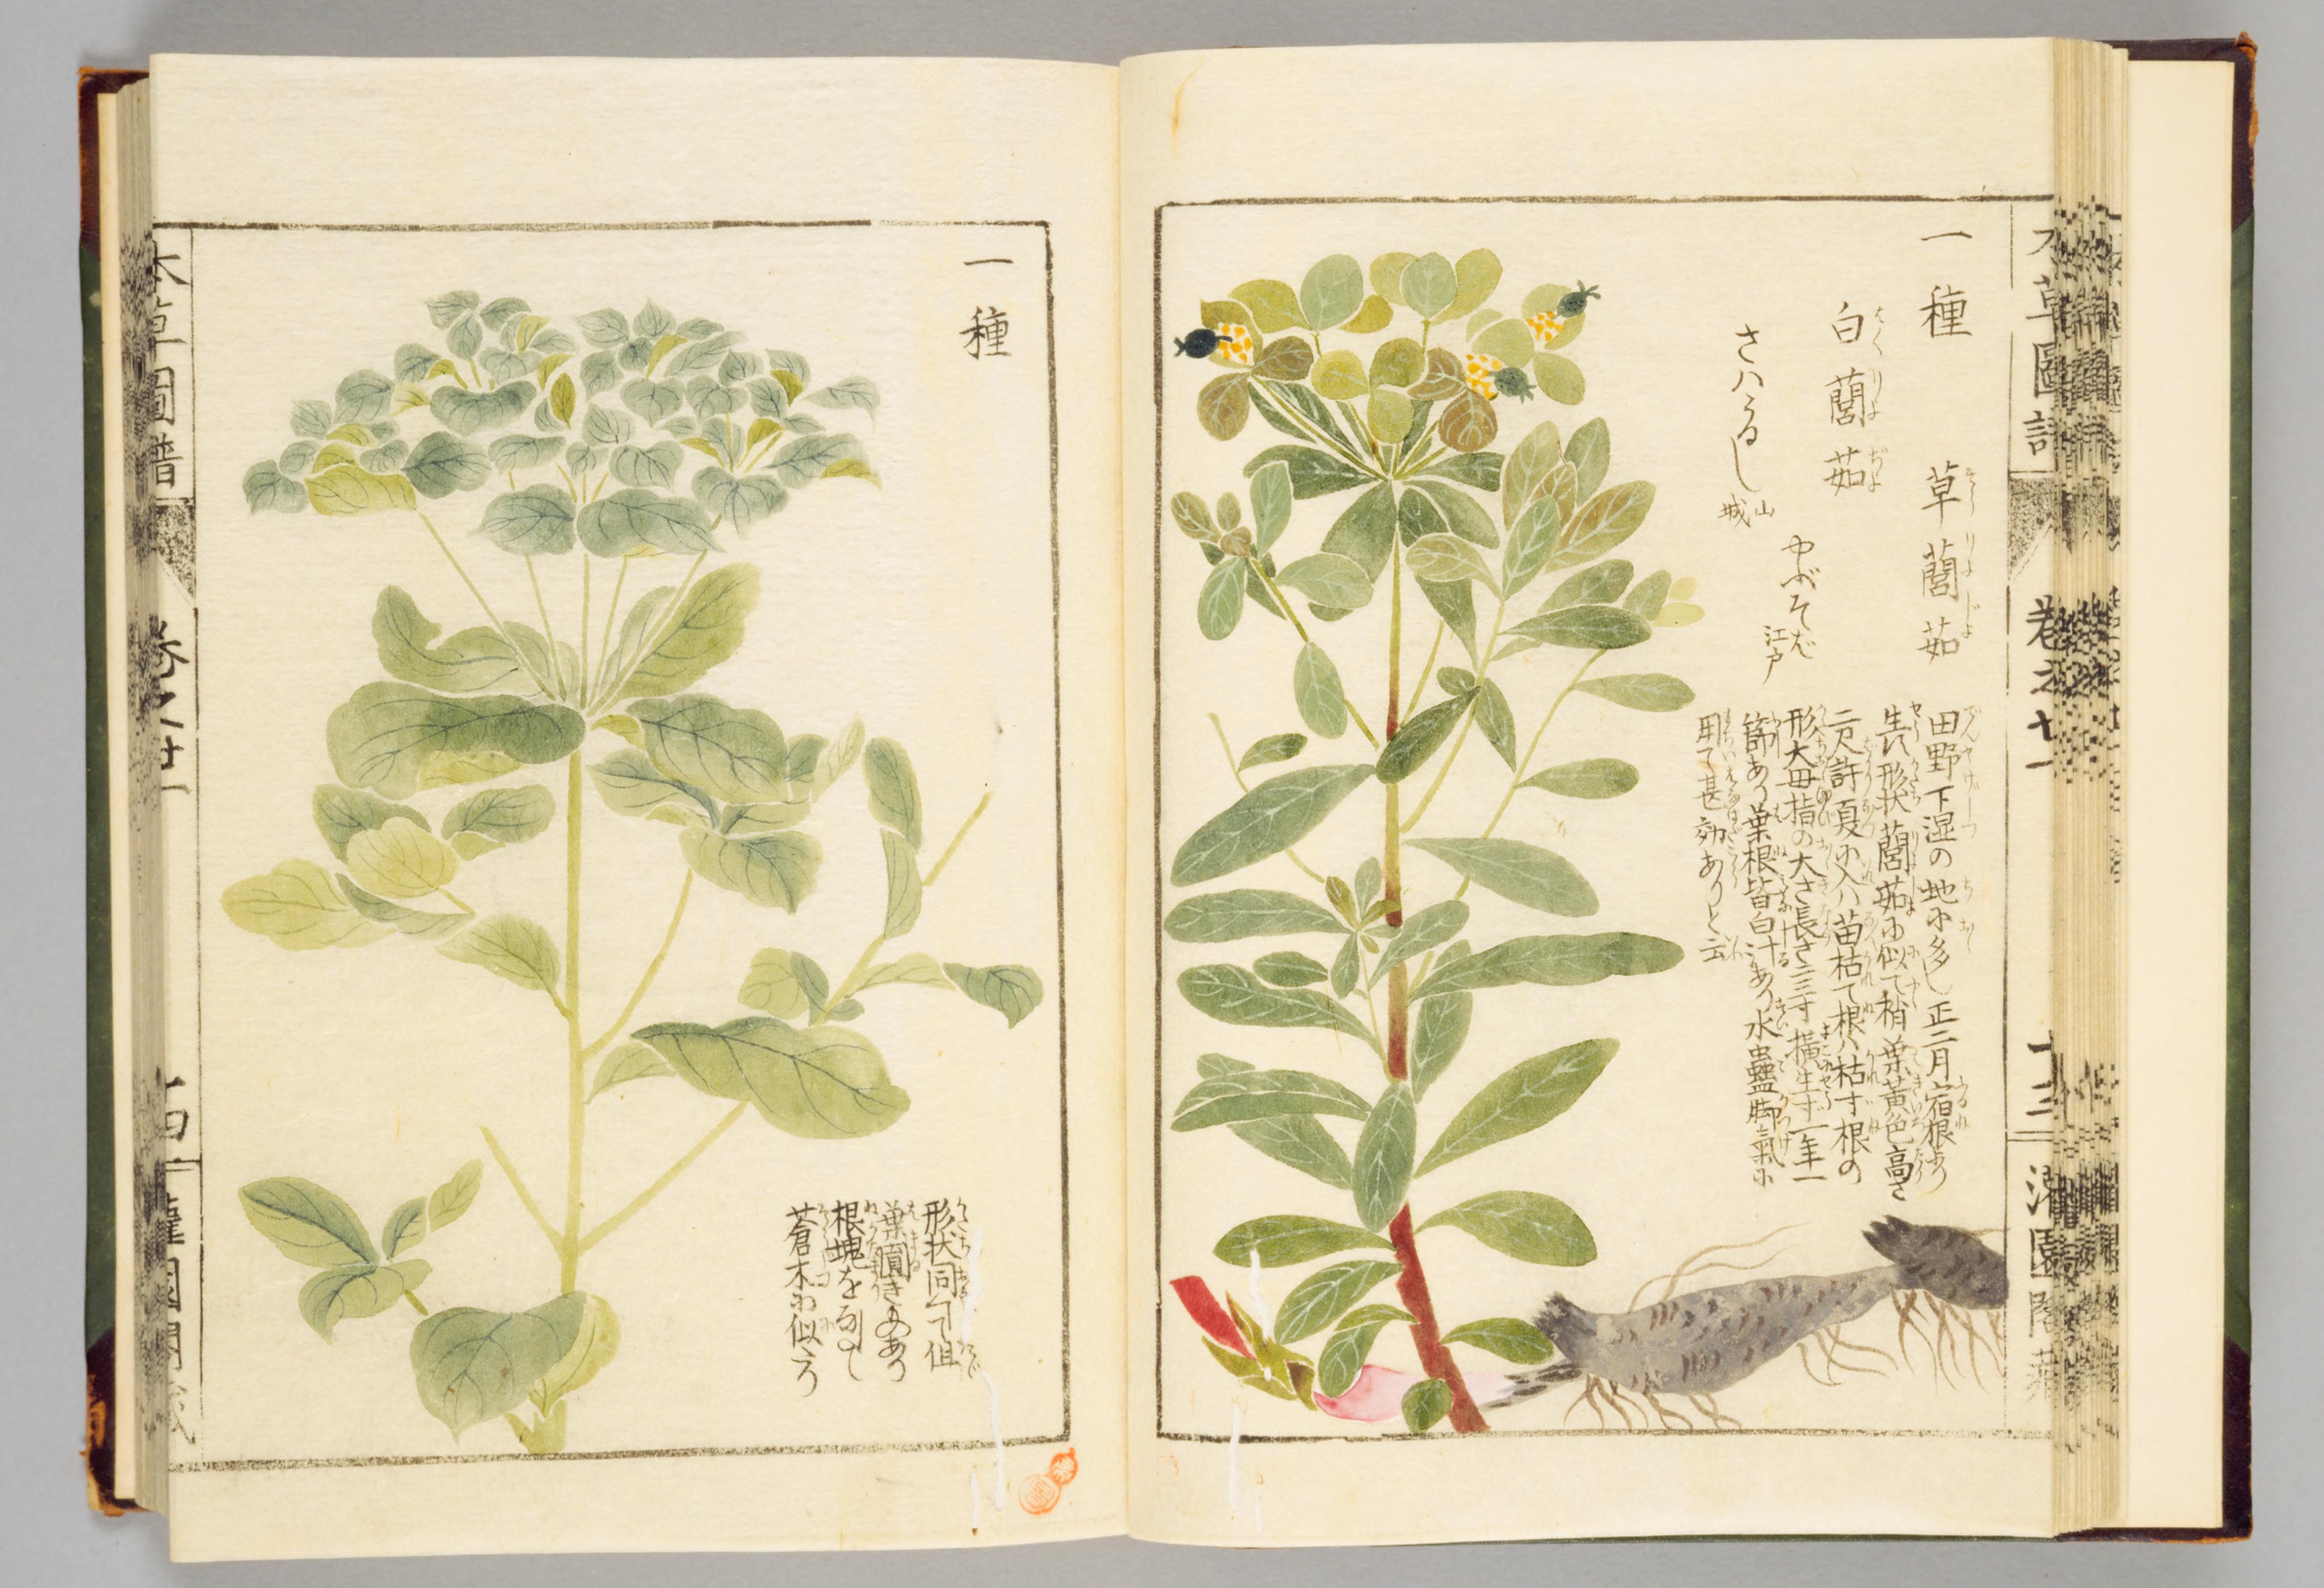 一種
草䕡茹
白䕡茹
さハうるし
山城
やぶそば
江戸
田野下湿の地に多し正二月宿根より
生ず形状䕡茹に似て稍葉黄色高さ
二尺許夏に入ハ苗枯て根ハ枯ず根の
形大毋指の大さ長さ二三寸横生ず一年一
節あり葉根皆白汁あり水蟲脚氣に
用て甚効ありと云
本草圖譜
巻之廿一
十三
一種
形状同くて但
葉圓きのあり
根塊をなし
蒼朮に似たり
本草圖譜
巻之廿一
十四